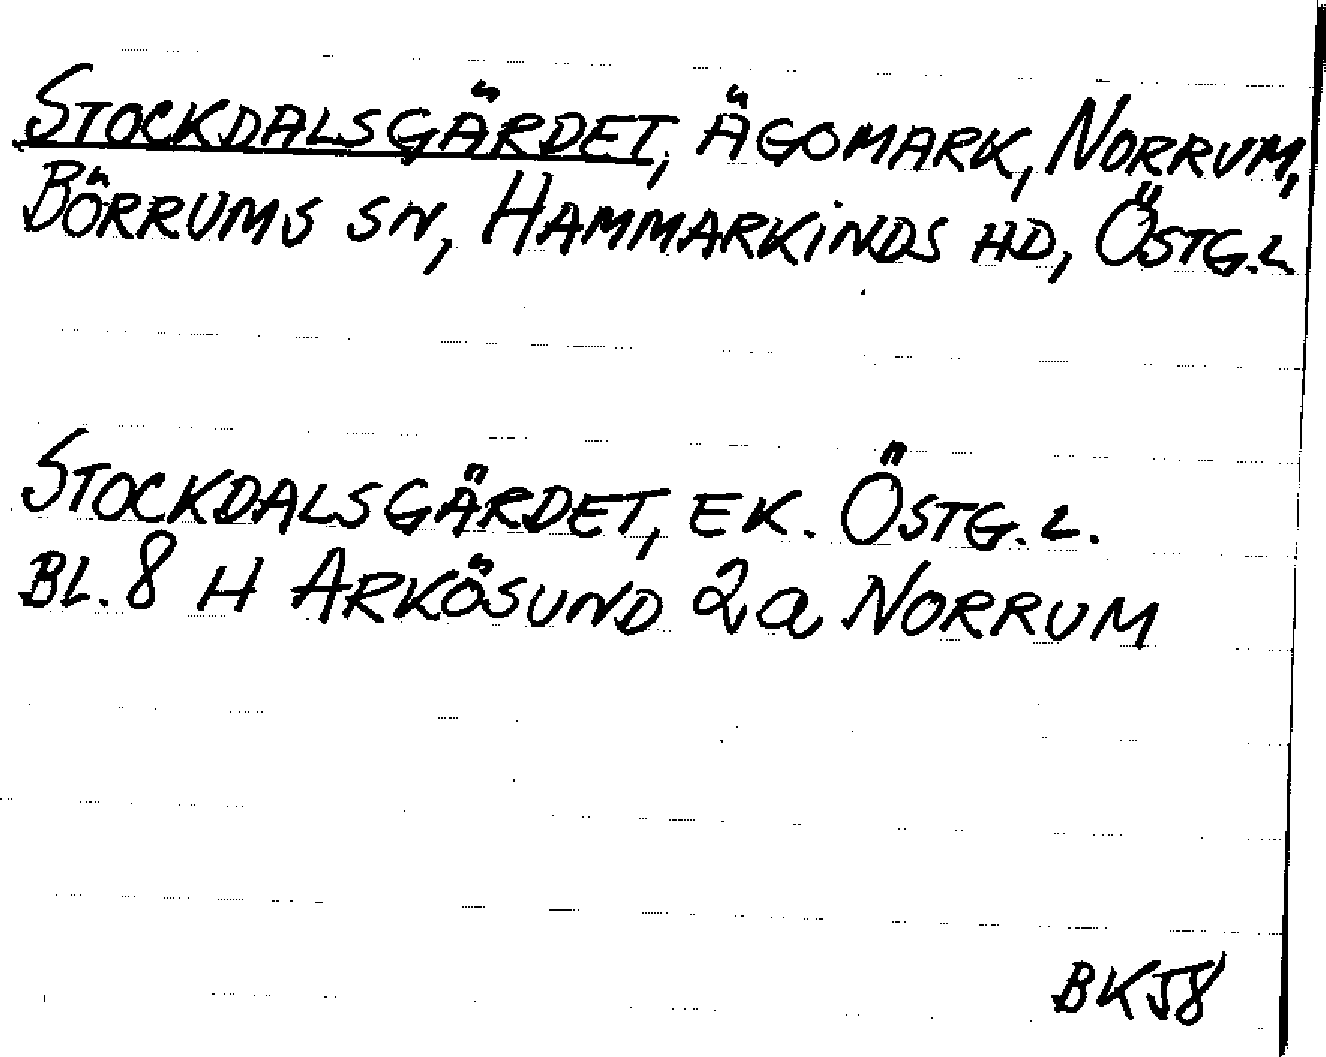 STOCKDALSGÄRDET, ÄGOMARK, NORRUM,
BÖRRUMS SN, HAMMARKINDS HD, ÖSTG.L
STOCKDALSGÄRDET, EK. ÖSTG.L.
BL. 8 H ARKÖSUND 2a NORRUM
BK58